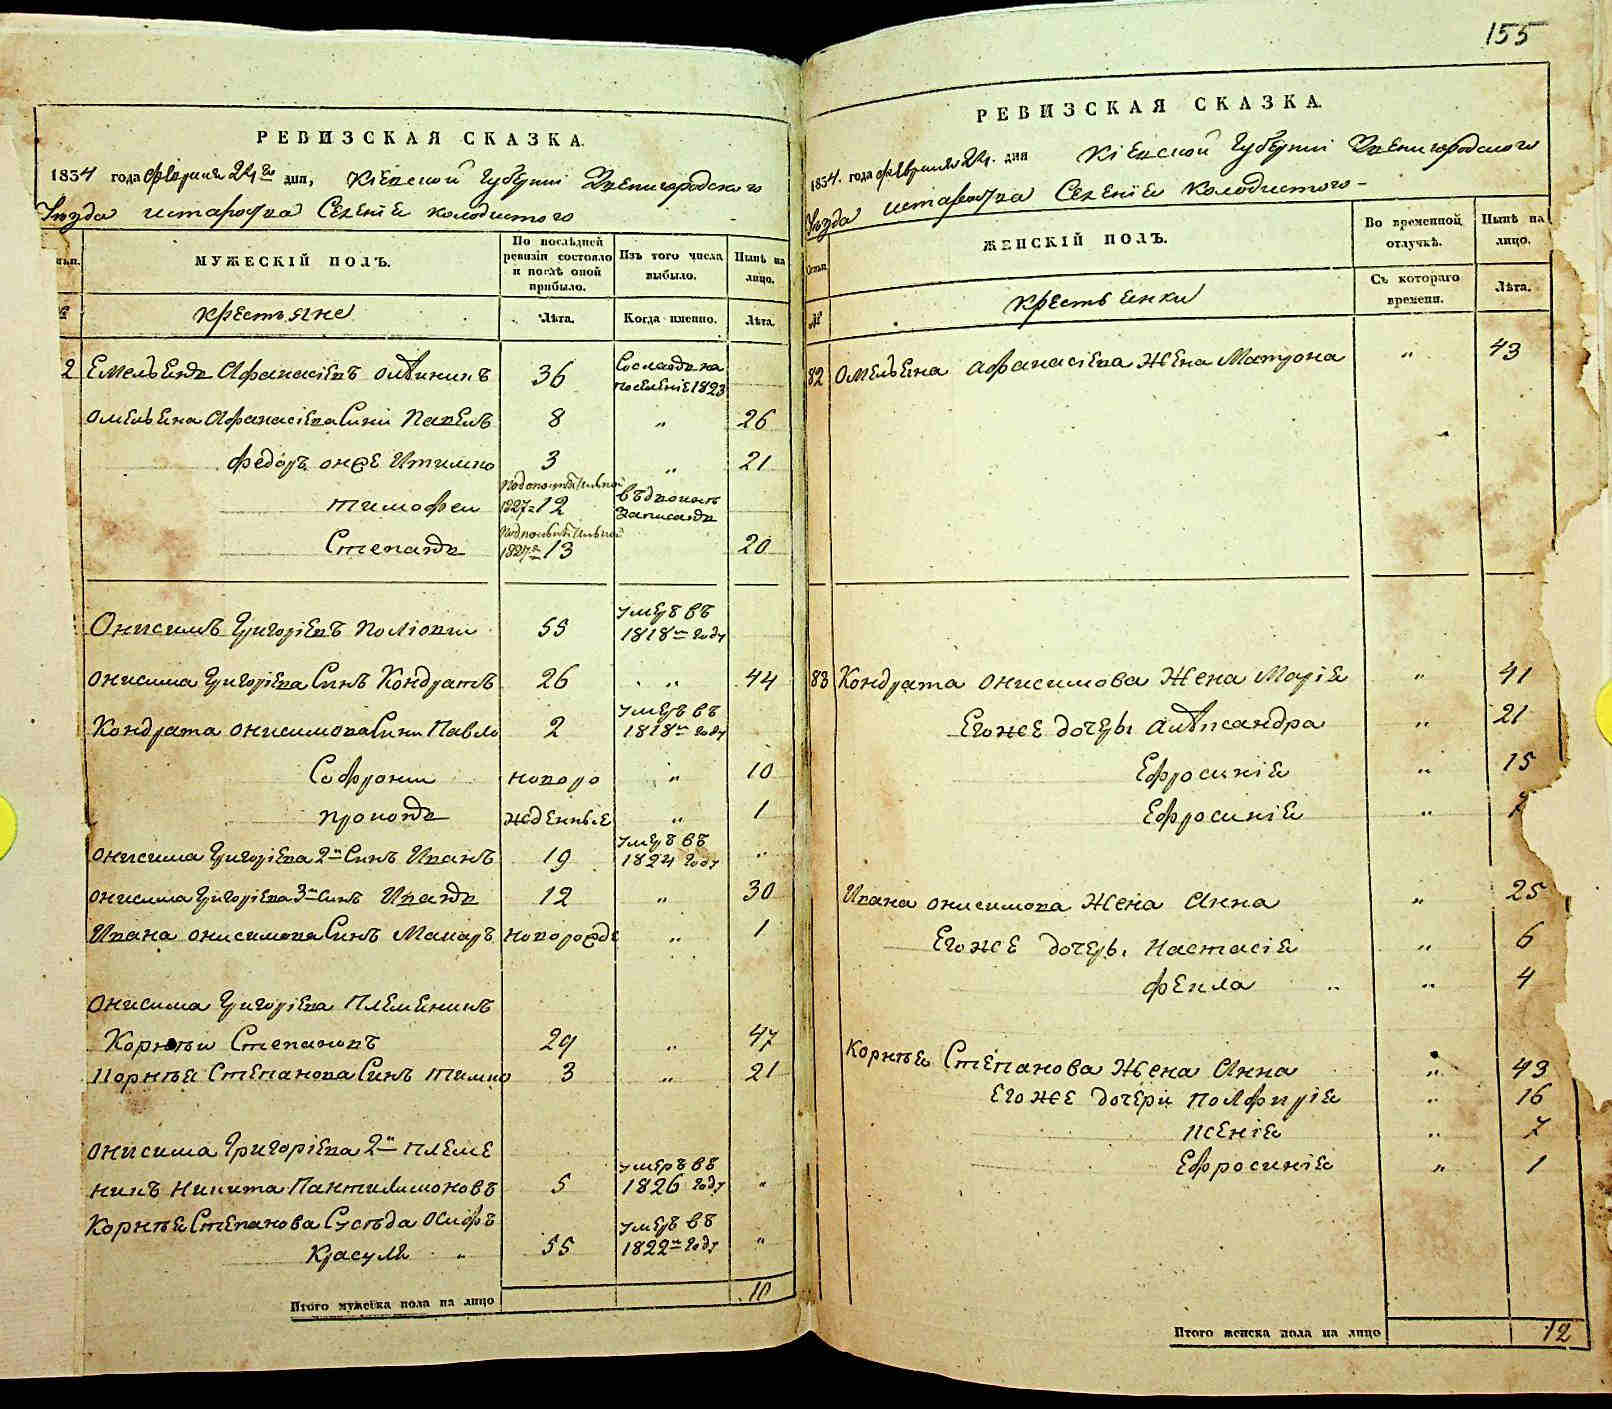 РЕВИЗСКАЯ СКАЗКА.
1834 года февраля 24го дня, Кіевской Губерніи Звенигородского
Уезда Селеніе Колодистого
МУЖЕСКІЙ ПОЛЪ.
По послѣдней ревизіи состояло и послѣ оной прибыло.
Изъ того числа выбыло.
Нынѣ на лицо.
крестьяне
Лѣта.
Когда именно.
Лѣта.
2 Емельянъ Афанасіевъ 36 Сосланъ на поселеніе 1823
Омельяна Афанасіева Сини Павелъ 8 „ 26
Федоръ онже Итимко 3 „ 21
Тимофеи 1827 12 записанъ
Степанъ 1827 13 20
Онисимъ Григоріевъ 55 умеръ въ 1818м году
Онисима Григоріева Синъ Кондратъ 26 „ 44
Кондрата Онисимова Сини Павло 2 умеръ въ 1818м году
Софрони новоро „ 10
Прокопъ жденные „ 1
Онисима Григоріева 2й Синъ Иванъ 19 умеръ въ 1824 году „
Онисима Григоріева 3й Синъ Иванъ 12 „ 30
Ивана Онисимова Синъ Макаръ новорожде „ 1
Онисима Григоріева Племеникъ
Корнѣи Степановъ 29 „ 47
Корнѣя Степанова Синъ Тимко 3 „ 21
Онисима Григоріева 2й племе
никъ Никита Пантилимоновъ 5 умеръ въ 1826 году „
Корнѣя Степанова Сусѣда Осифъ
Красуля „ 55 умеръ въ 1822м году „
Итого мужеска пола на лицо 10
155
РЕВИЗСКАЯ СКАЗКА.
1834. года февраля 24. дня Кіевской Губерніи Звенигородского
Уезда Селеніе Колодистого
ЖЕНСКІЙ ПОЛЪ.
Во временной отлучкѣ.
Нынѣ на лицо.
№
крестьянки
Съ котораго времени.
Лѣта.
82 Омельяна Афанасіева Жена Матрона „ 43
83 Кондрата Онисимова Жена Маріе „ 41
Егоже дочеры Александра „ 21
Ефросиніе „ 15
Ефросиніе „ 7
Ивана Онисимова Жена Анна „ 25
Егоже дочеры Настасіе „ 6
Фекла „ 4
Корнѣя Степанова Жена Анна „ 43
Егоже дочери Порфиріе „ 16
Ксеніе „ 7
Ефросиніе „ 1
Итого женска пола на лицо 12